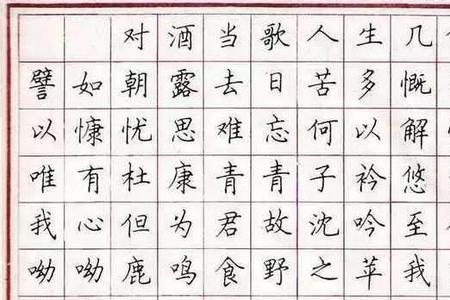 对酒当歌人生几
譬如朝露去日苦多慨
以慷忧思难忘何以解
唯有杜康青青子衿悠
我心但为君故沈吟至
呦呦鹿鸣食野之苹我